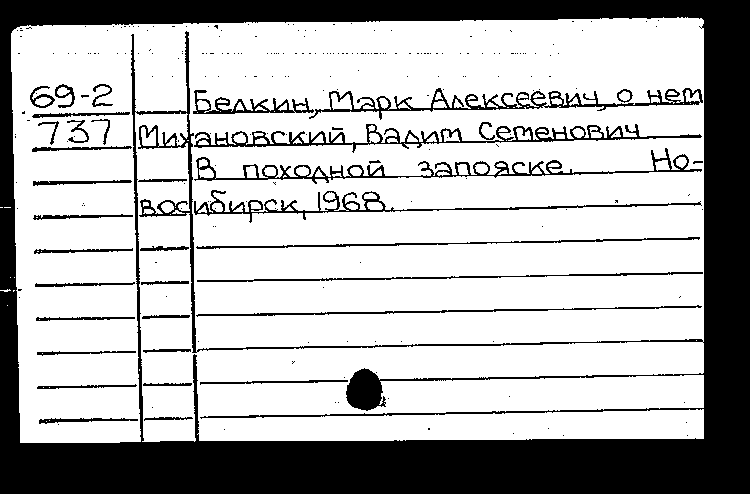 69-2 Белкин, Марк Алексеевич, о нем
737 Михановский, Вадим Семенович
В походной запояске. Но-
восибирск, 1968.